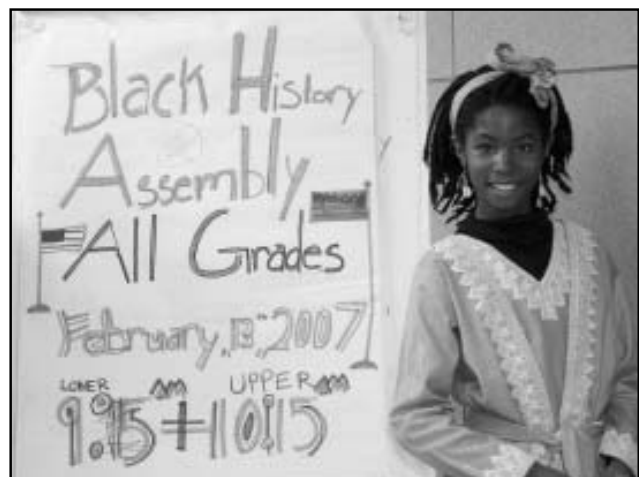 Black History
Assembly
All Grades
February, 13, 2007
LOWER AM UPPER AM
9:15 + 10:15